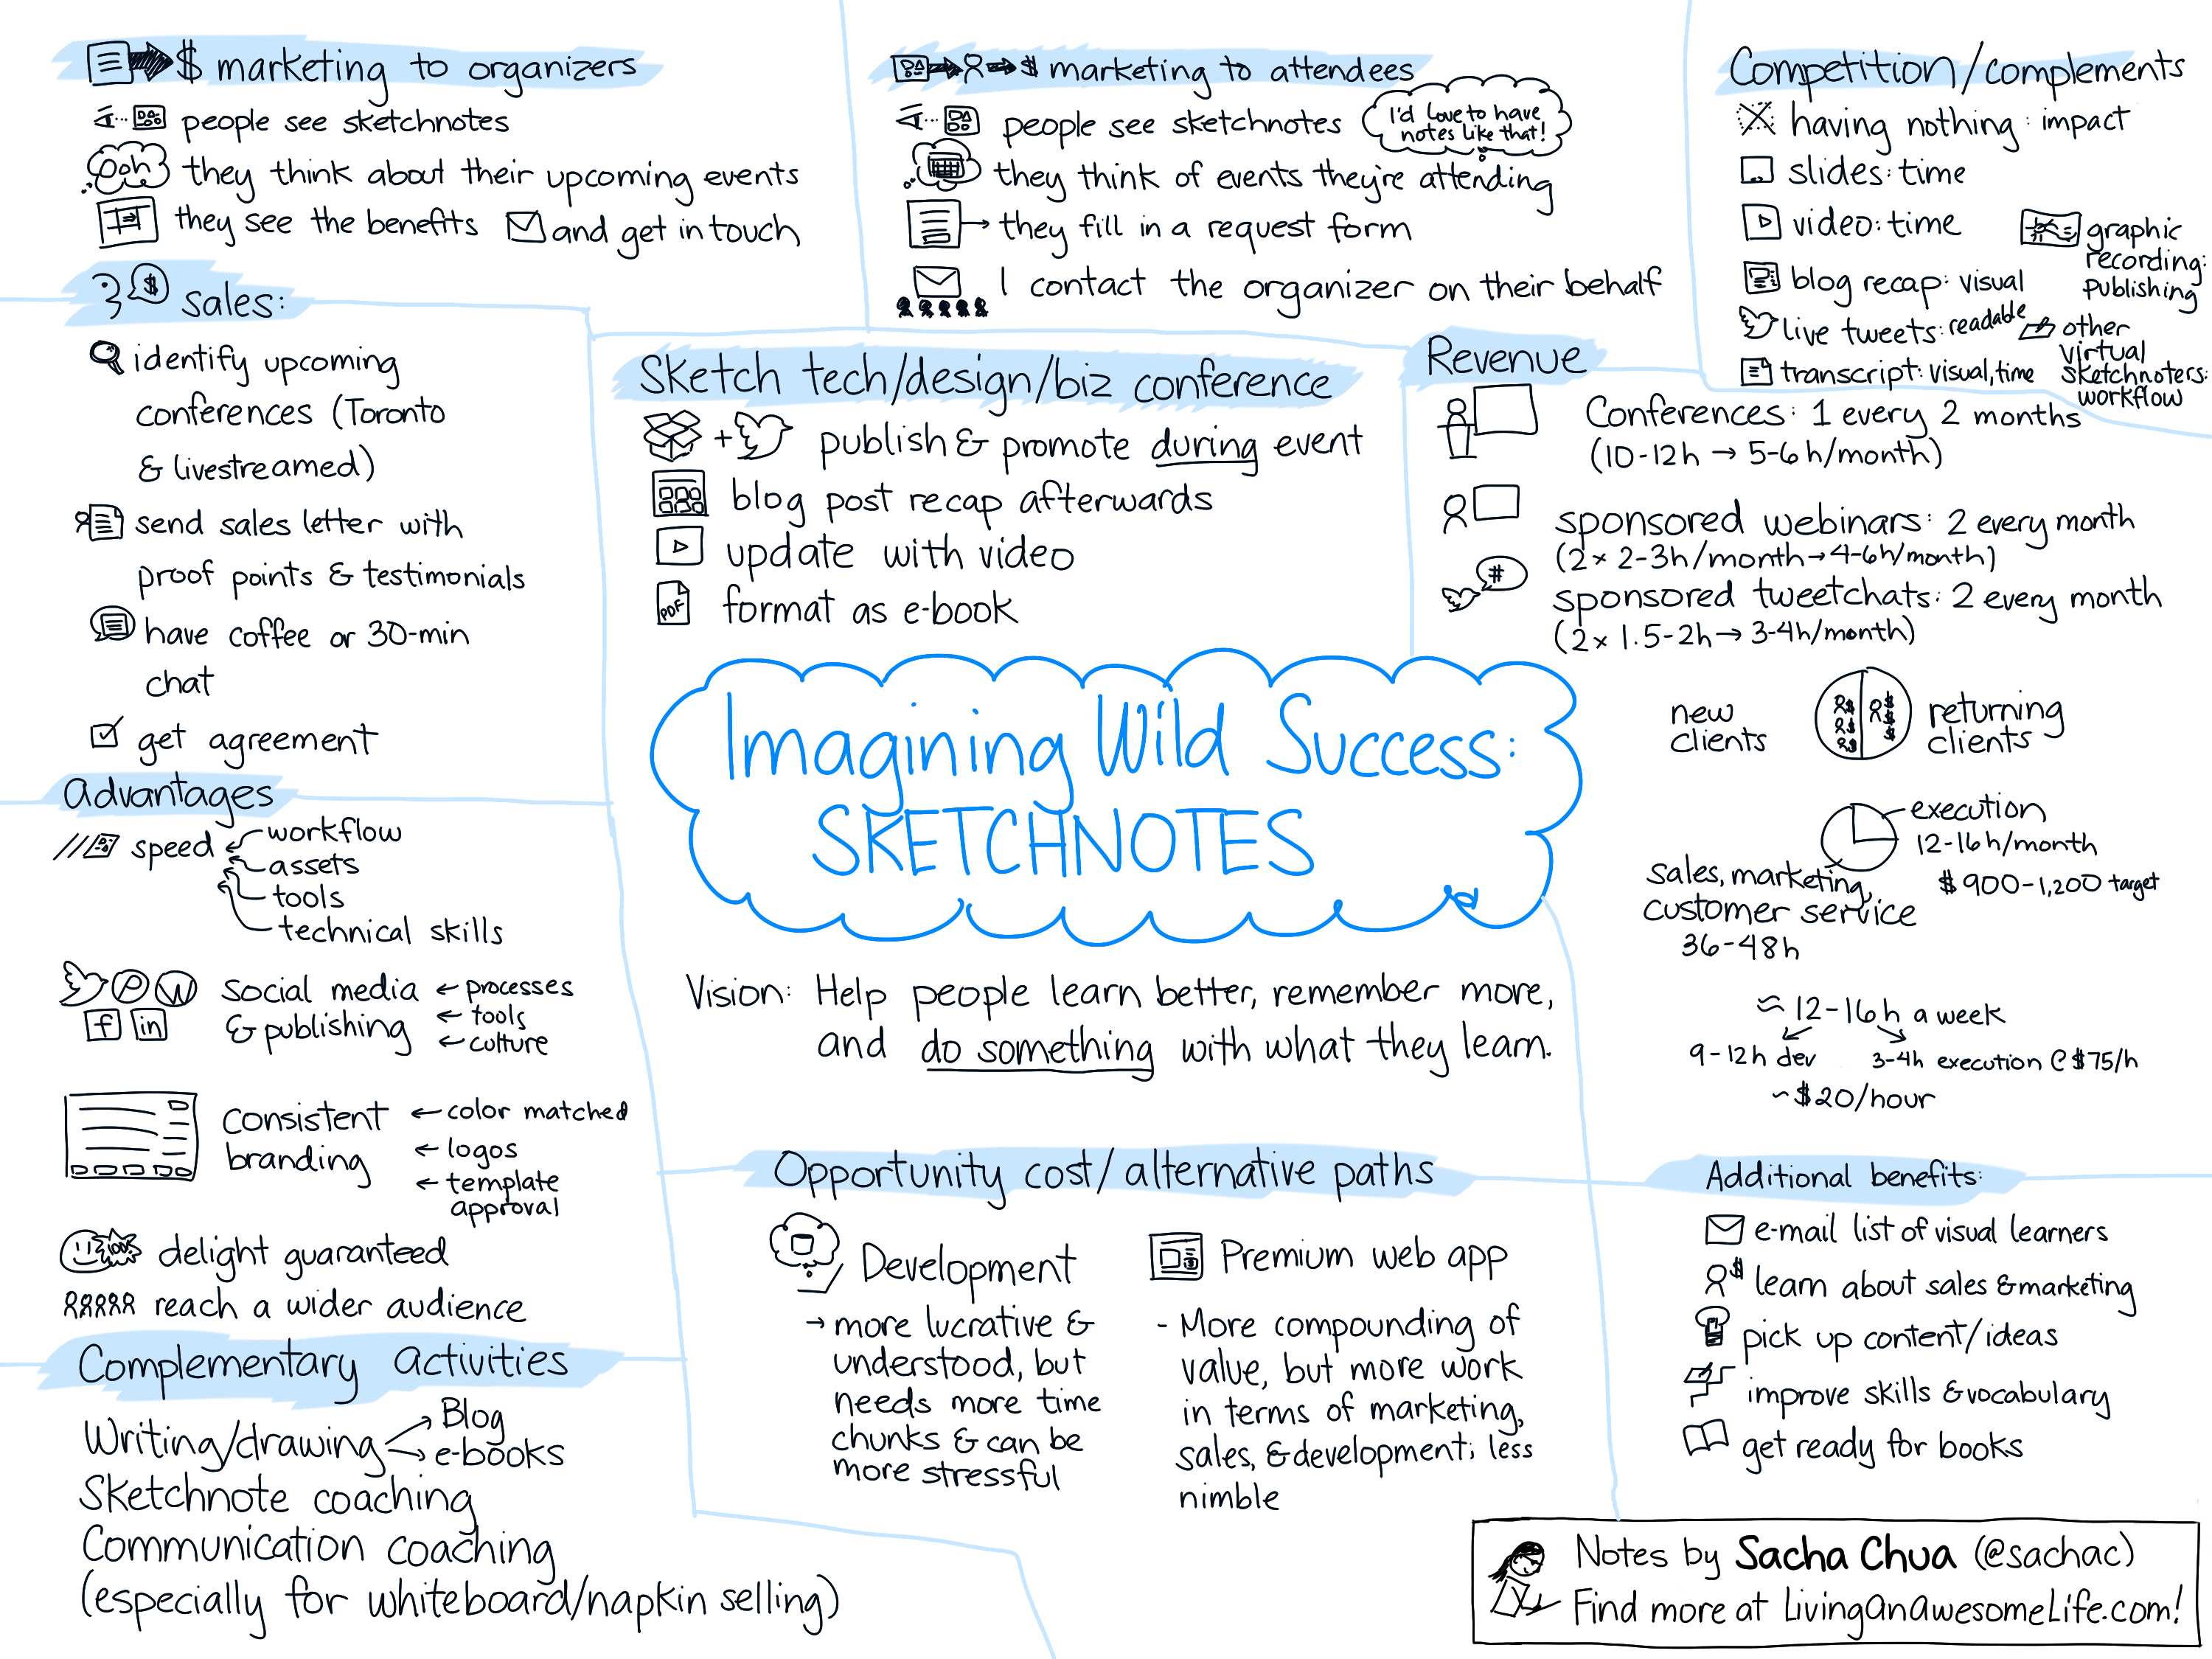 $ marketing to organizers
people see sketchnotes
Ooh
they think about their upcoming events
they see the benefits
and get in touch
$ marketing to attendees
people see sketchnotes
I'd love to have
notes like that!
they think of events they're attending
they fill in a request form
I contact the organizer on their behalf
Competition/complements
having nothing: impact
slides: time
video: time
blog recap: visual
live tweets: readable
transcript: visual, time
graphic
recording:
publishing
other
virtual
sketchnoters:
workflow
$
sales:
identify upcoming
conferences (Toronto
& livestreamed)
send sales letter with
proof points & testimonials
have coffee or 30-min
chat
get agreement
Sketch tech/design/biz conference
+
publish & promote during event
blog post recap afterwards
update with video
PDF
format as e-book
Revenue
Conferences: 1 every 2 months
(10-12h → 5-6h/month)
sponsored webinars: 2 every month
(2x 2-3h/month → 4-6h/month)
#
sponsored tweetchats: 2 every month
(2x 1.5-2h → 3-4h/month)
new
clients
returning
clients
execution
12-16h/month
$900-1,200 target
sales, marketing,
customer service
36-48h
≈ 12-16h a week
9-12h dev
3-4h execution @ $75/h
~$20/hour
Imagining Wild Success:
SKETCHNOTES
Vision: Help people learn better, remember more,
and do something with what they learn.
advantages
speed
workflow
assets
tools
technical skills
social media
& publishing
← processes
← tools
← culture
f
in
consistent
branding
← color matched
← logos
← template
approval
100%
delight guaranteed
reach a wider audience
Complementary activities
Writing/drawing
Blog
e-books
Sketchnote coaching
Communication coaching
(especially for whiteboard/napkin selling)
Opportunity cost/alternative paths
Development
→ more lucrative &
understood, but
needs more time
chunks & can be
more stressful
Premium web app
- More compounding of
value, but more work
in terms of marketing,
sales, & development; less
nimble
Additional benefits:
e-mail list of visual learners
learn about sales & marketing
pick up content/ideas
improve skills & vocabulary
get ready for books
Notes by Sacha Chua (@sachac)
Find more at LivingAnAwesomeLife.com!